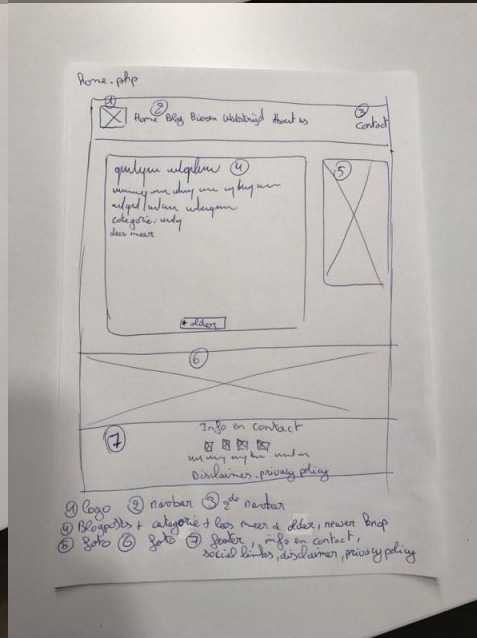 Home.php
① ② ③
Home Blog Bicom Webstrijd About us Contact
④ ⑤
categorie:
lees meer
+ older
⑥
⑦ Info en contact
Disclaimer. privacy policy
① Logo ② navbar ③ 2de navbar
④ Blogposts + categorie + lees meer & older, newer knop
⑤ foto ⑥ foto ⑦ footer, info en contact,
social links, disclaimer, privacy policy